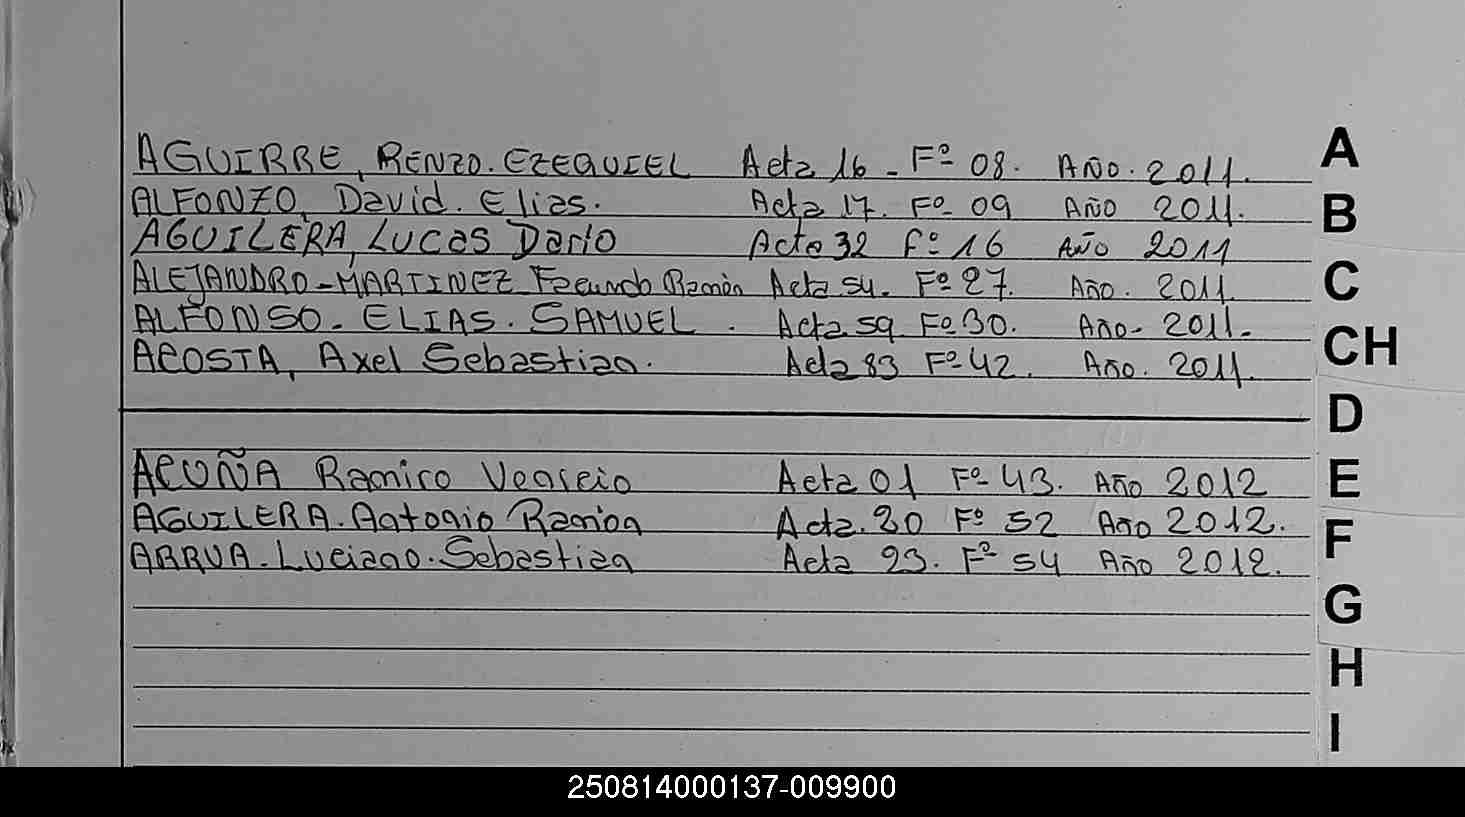 AGUIRRE, RENZO. EZEQUIEL Acta 16 - Fº 08. AÑO. 2011.
ALFONZO, David. Elias. Acta 17. Fº 09 AÑO 2011.
AGUILERA, LUCAS Dario Acta 32 Fº 16 AÑO 2011
ALEJANDRO-MARTINEZ Facundo Ramón Acta 54. Fº 27. Año. 2011.
ALFONSO. ELIAS. SAMUEL. Acta 59 Fº 30. Año. 2011.
ACOSTA, Axel Sebastian. Acta 83 Fº 42. Año. 2011.
ACUÑA Ramiro Acta 01 Fº 43. Año 2012
AGUILERA. Antonio Ramon Acta. 20 Fº 52 Año 2012.
ARRUA. Luciano. Sebastian Acta 23. Fº 54 Año 2012.
A
B
C
CH
D
E
F
G
H
I
250814000137-009900